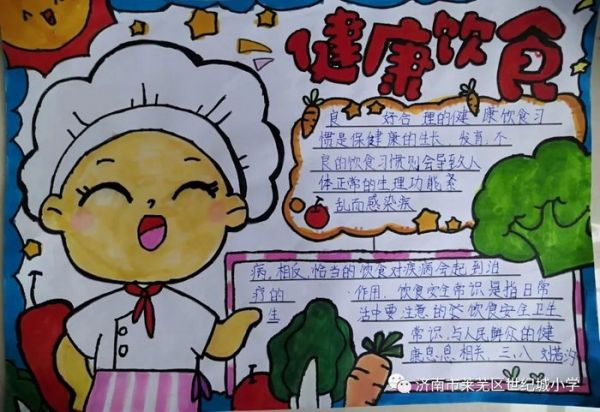 健康饮食
良 好合 理的健 康饮食习
惯是保健 康的生长,发育,不
良的饮食习惯则会导致人
体正常的生理功能紊
乱而感染疾
病,相反,恰当的饮食对疾病会起到治
疗的 作用. 饮食安全常识是指日常
生 活中要注意的 饮食安全卫生
常识,与人民群众的健
康息息相关. 三、八 刘
济南市莱芜区世纪城小学